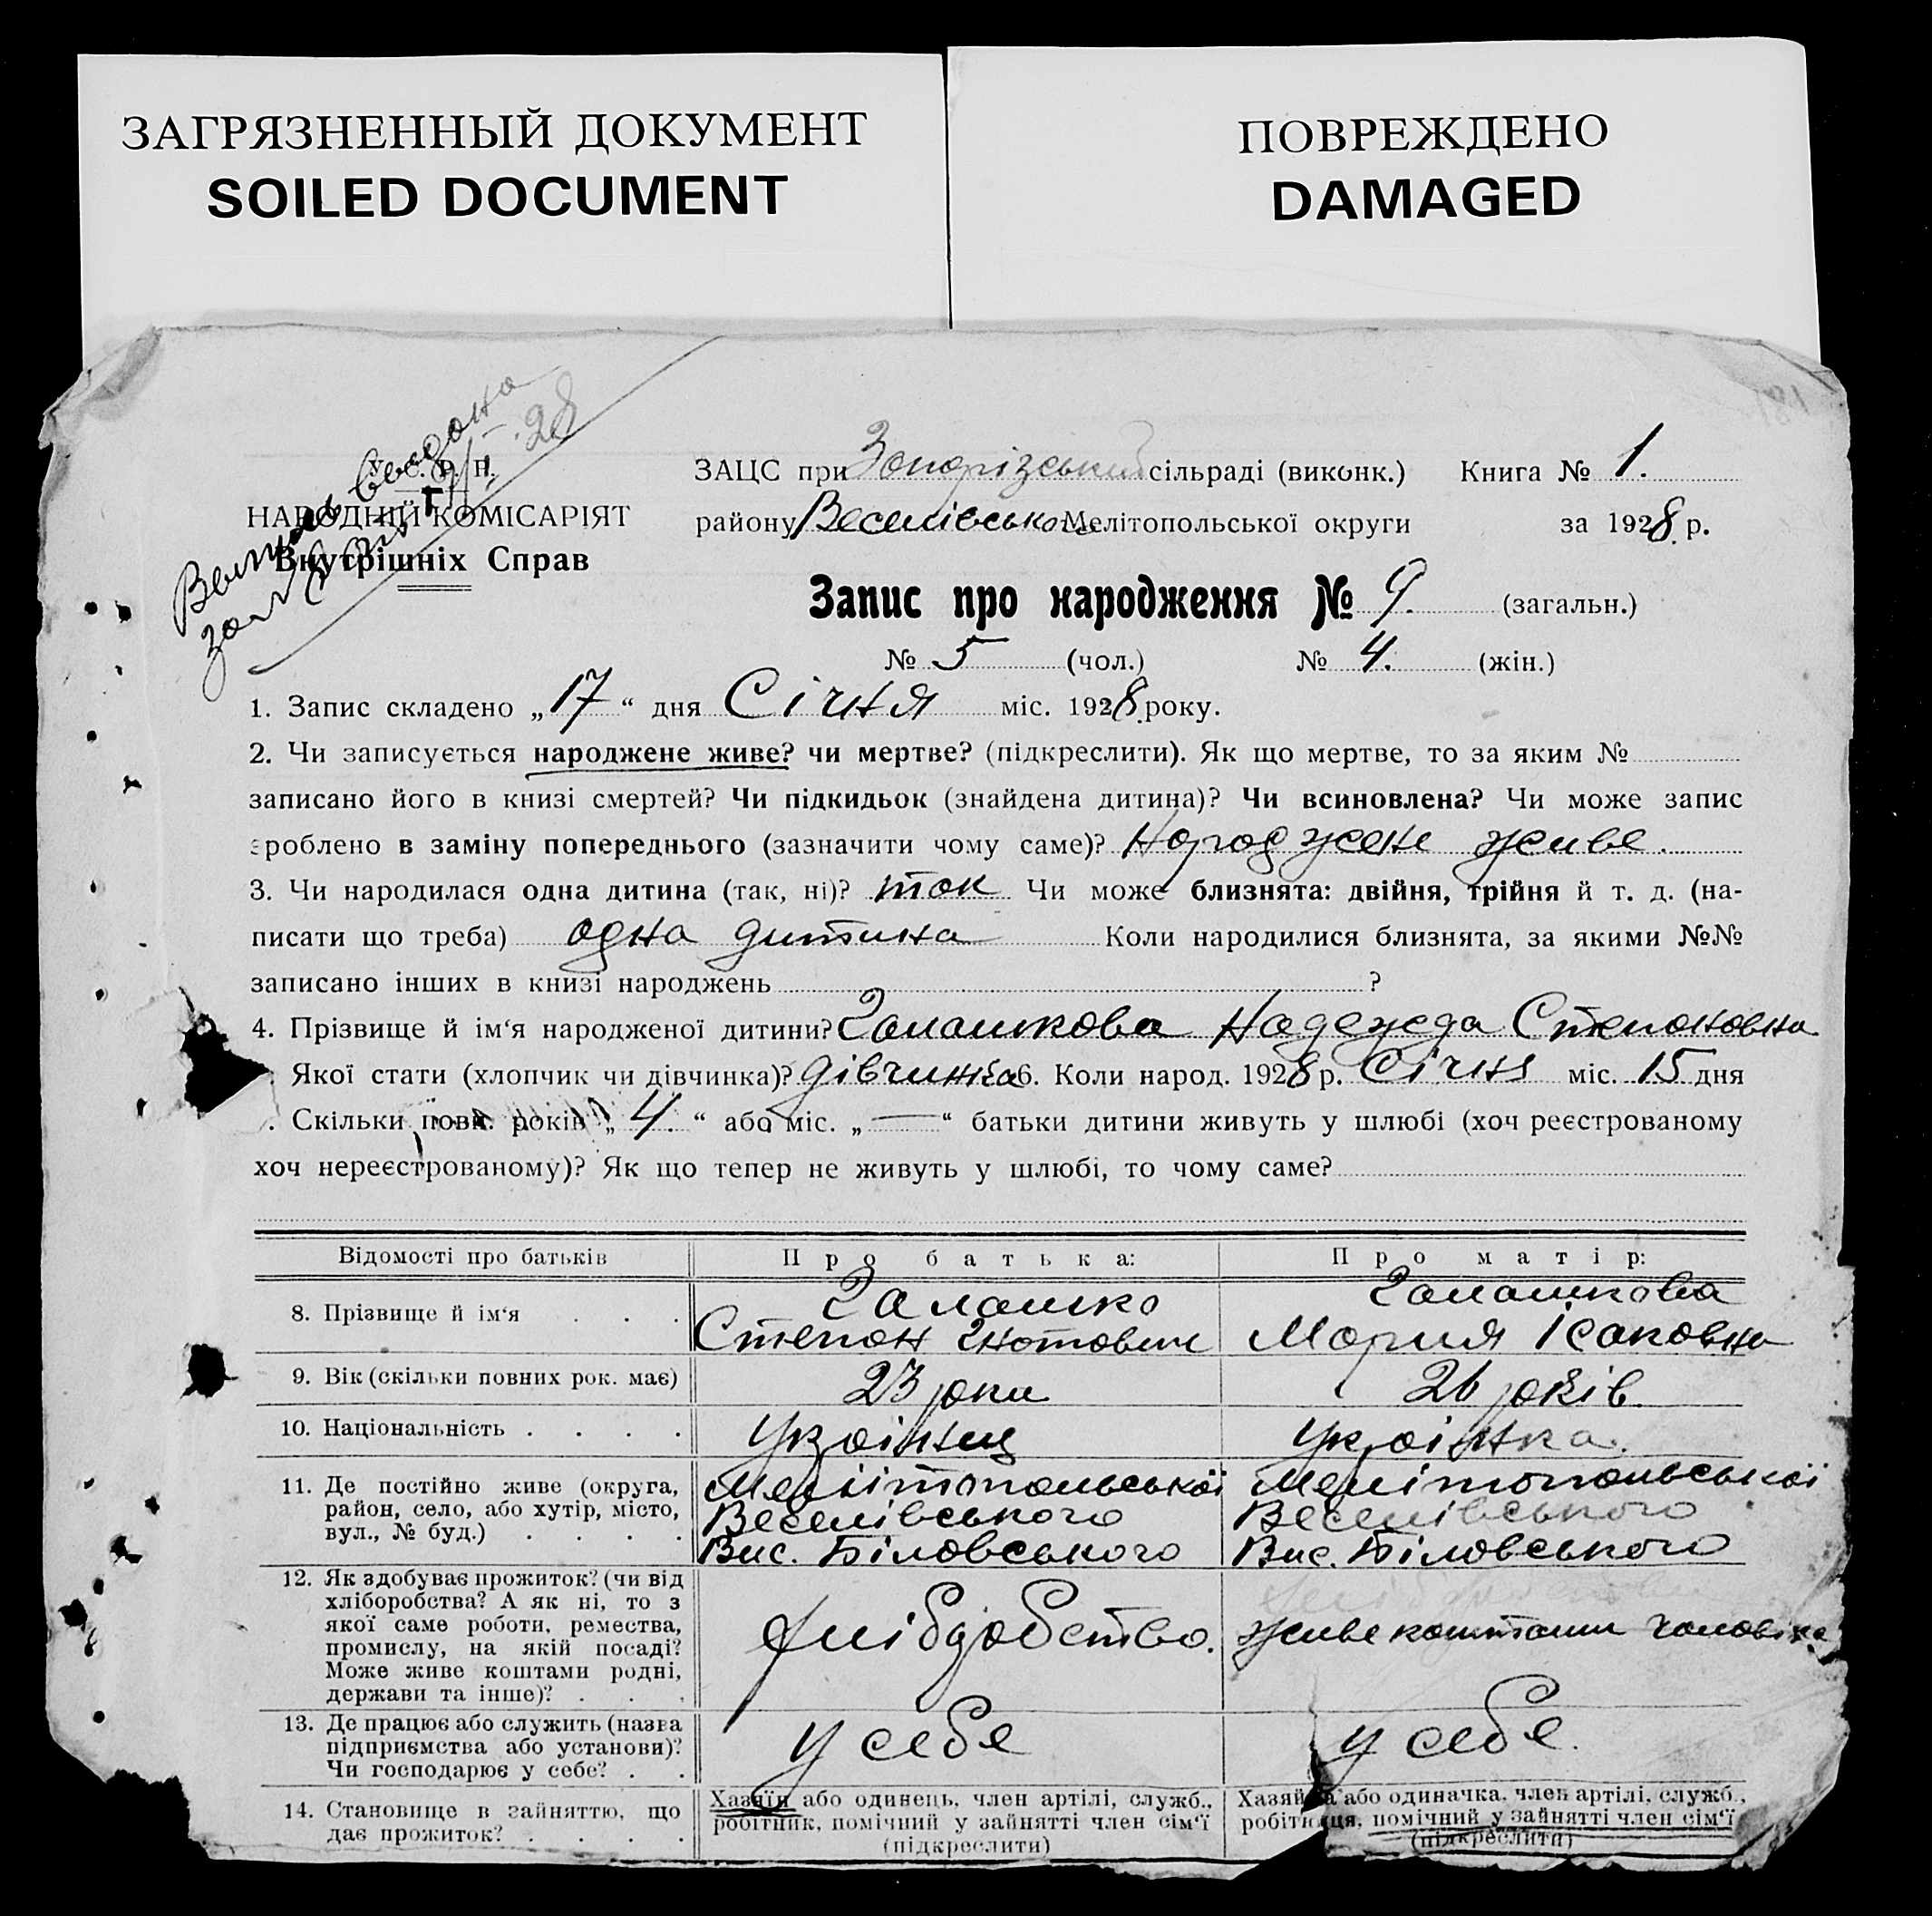 ЗАГРЯЗНЕННЫЙ ДОКУМЕНТ
SOILED DOCUMENT
ПОВРЕЖДЕНО
DAMAGED
28
НАРОДНІЙ КОМІСАРІЯТ
Внутрішніх Справ
ЗАЦС при Запорізській сільраді (виконк.) Книга № 1.
району Веселівського Мелітопольської округи за 1928 р.
Запис про народження № 9. (загальн.)
№ 5 (чол.) № 4. (жін.)
1. Запис складено „17“ дня Січня міс. 1928 року.
2. Чи записується народжене живе? чи мертве? (підкреслити). Як що мертве, то за яким №
записано його в книзі смертей? Чи підкидьок (знайдена дитина)? Чи всиновлена? Чи може запис
зроблено в заміну попереднього (зазначити чому саме)? Народжене живе.
3. Чи народилася одна дитина (так, ні)? так Чи може близнята: двійня, трійня й т. д. (на-
писати що треба) одна дитина Коли народилися близнята, за якими №№
записано інших в книзі народжень ?
4. Прізвище й ім‘я народженої дитини? Галашкова Надежда Степановна
Якої стати (хлопчик чи дівчинка)? дівчинка 6. Коли народ. 1928 р. Січня міс. 15 дня
. Скільки повн. років „4.“ або міс. „—“ батьки дитини живуть у шлюбі (хоч реєстрованому
хоч нереєстрованому)? Як що тепер не живуть у шлюбі, то чому саме?
Відомості про батьків Про батька: Про матір:
8. Прізвище й ім‘я . . . Галашко Галашкова
Степан Мария Ісаковна
9. Вік (скільки повних рок. має) 23 роки 26 років.
10. Національність . . . . Українец Українка.
11. Де постійно живе (округа, Мелітопольської Мелітопольської
район, село, або хутір, місто, Веселівського Веселівського
вул., № буд.) . . . . Вис. Біловського Вис. Біловського
12. Як здобуває прожиток? (чи від
хліборобства? А як ні, то з
якої саме роботи, ремества, хліборобство. живе коштами чоловіка
промислу, на якій посаді?
Може живе коштами родні,
держави та інше)? . . .
13. Де працює або служить (назва
підприємства або установи)? у себе у себе.
Чи господарює у себе? . .
14. Становище в зайняттю, що Хазяїн або одинець, член артілі, служб., Хазяйка або одиначка, член артілі, служб.,
дає прожиток? . . . . робітник, помічний у зайнятті член сім‘ї робітниця, помічний у зайнятті член сім‘ї
(підкреслити) (підкреслити)